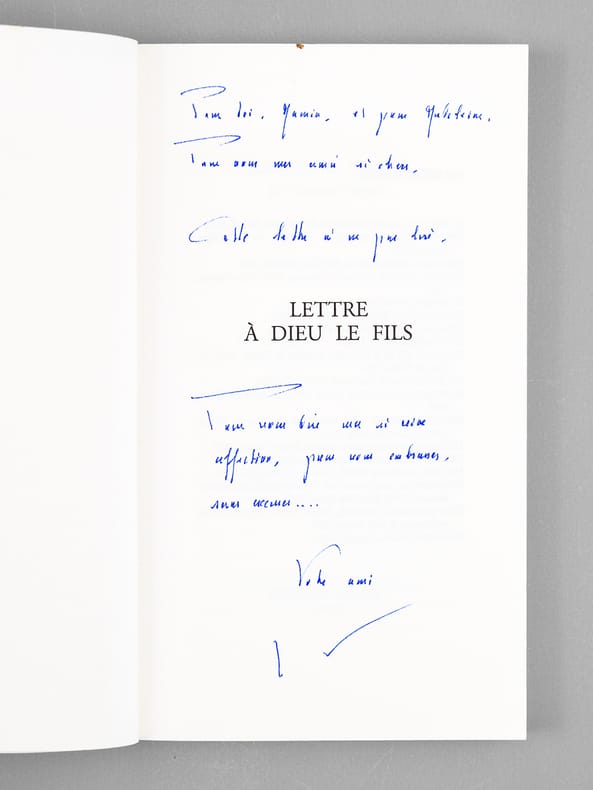 Pour toi, Mamia, et pour Madeleine,
Pour vous mes amis si chers,
Cette lettre si
LETTRE
À DIEU LE FILS
Pour vous dire ma si vive
affection, pour vous embrasser,
sans
Votre ami